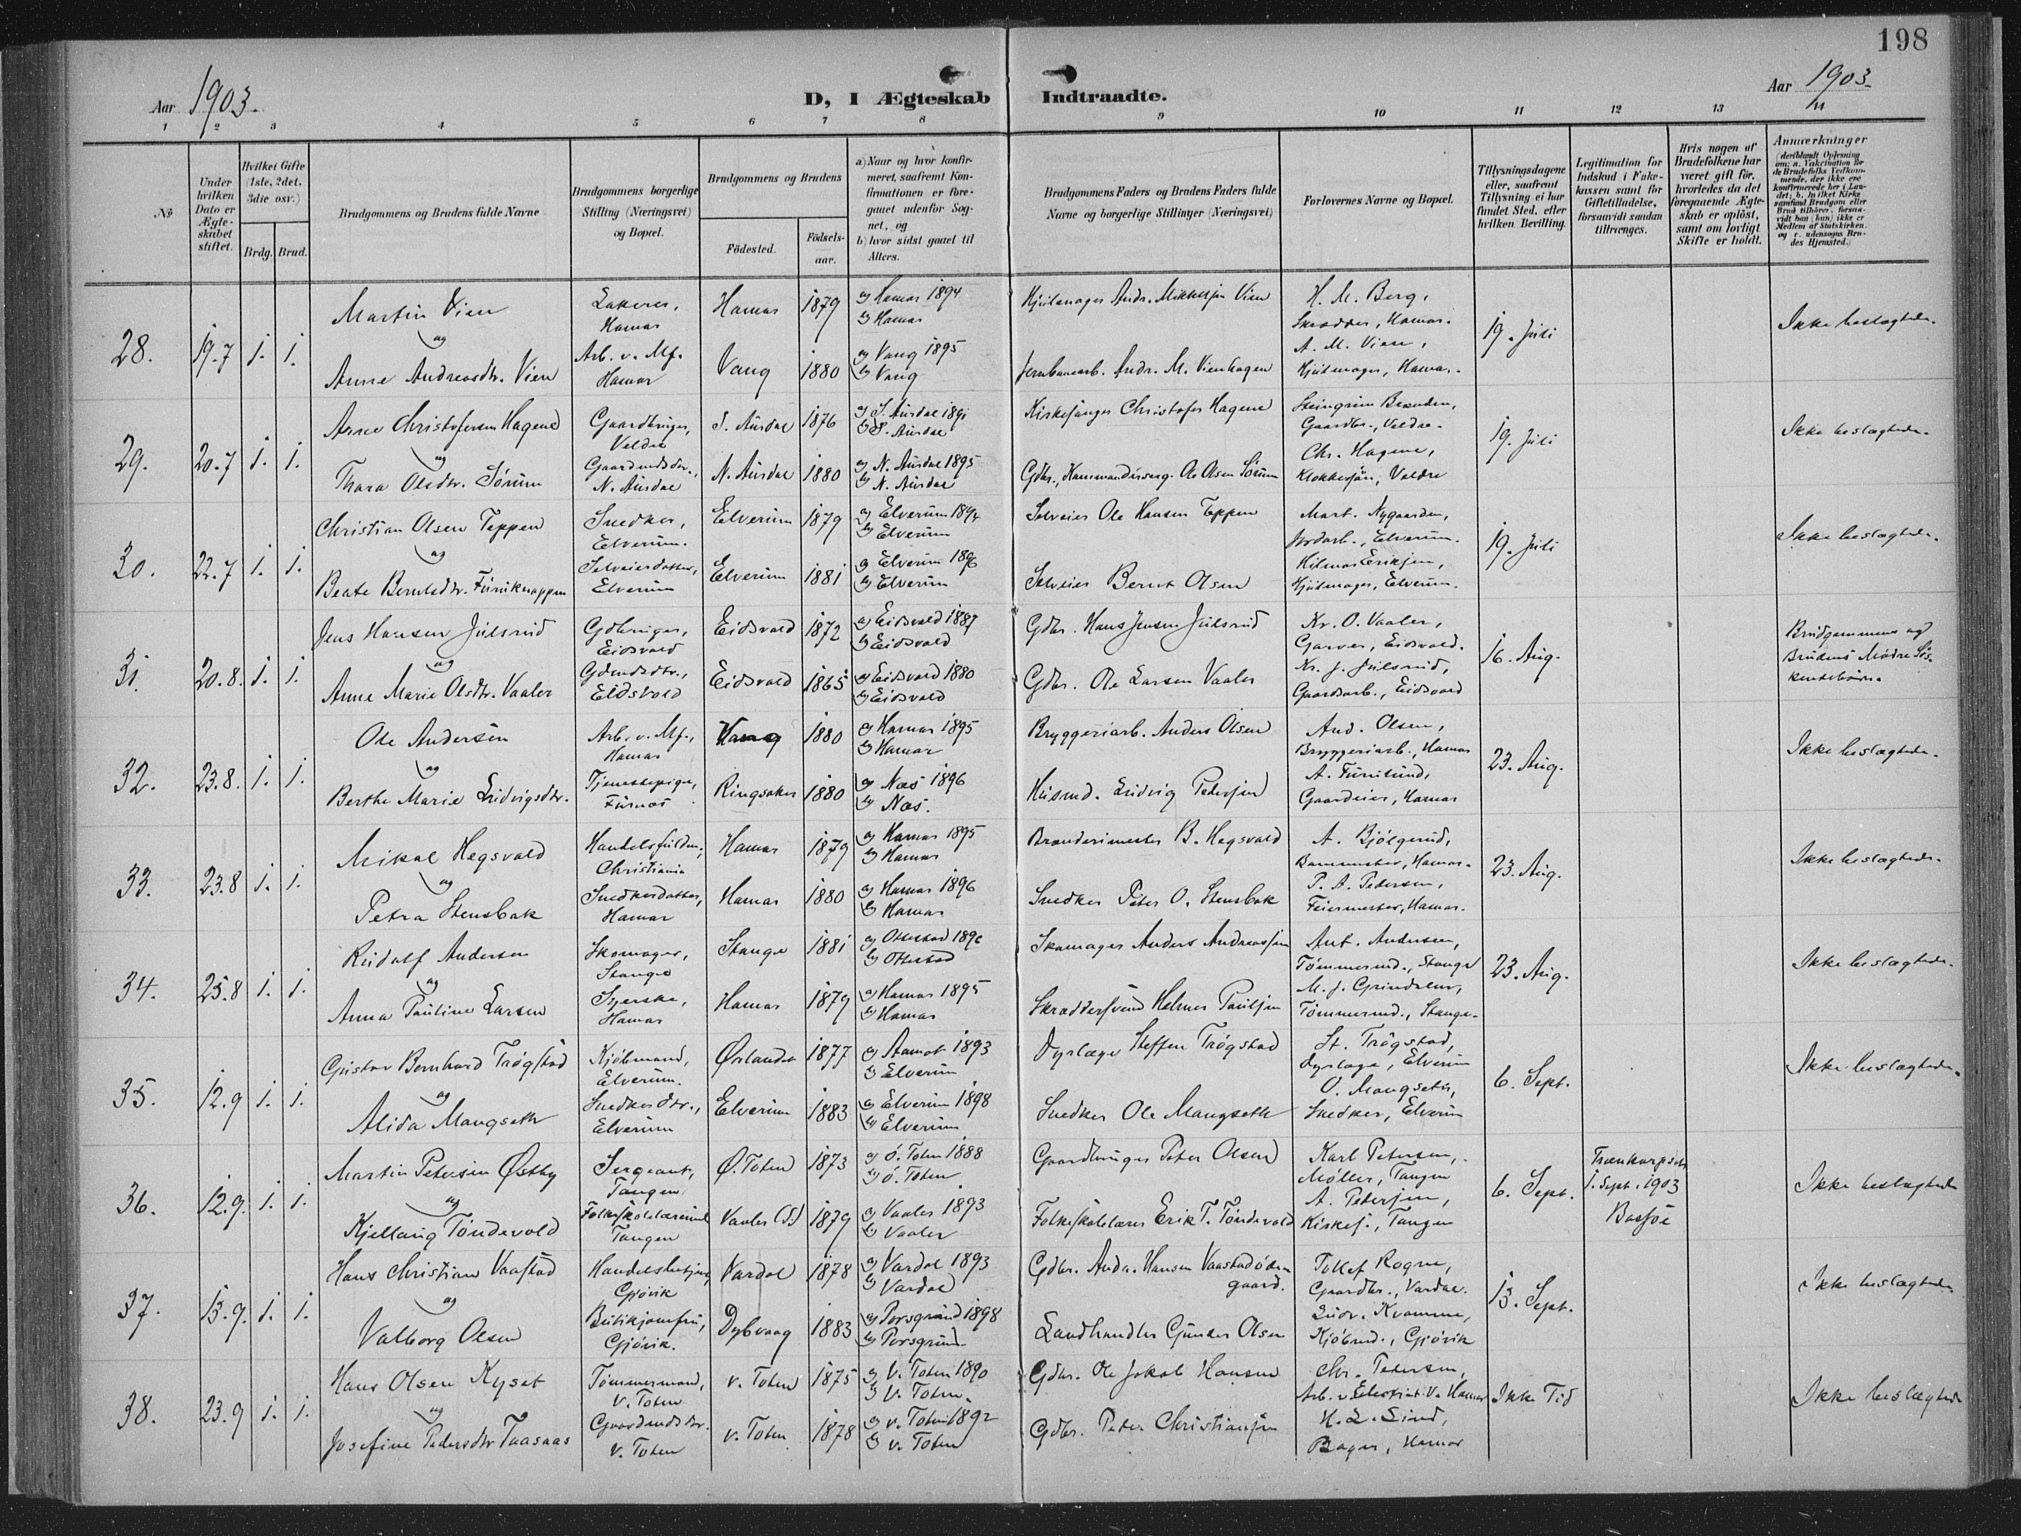 198
Aar 1903.
D, I Ægteskab Indtraadte.
Aar 1903.
1 2 3 4 5 6 7 8 9 10 11 12 13 14
No
Under hvilken Dato er Ægteskabet stiftet.
Hvilket Gifte (1ste, 2det, 3die osv.)
Brdg. Brud.
Brudgommens og Brudens fulde Navne.
Brudgommens borgerlige Stilling (Næringsvei) og Bopæl.
Brudgommens og Brudens
Fødested.
Fødselsaar.
a) Naar og hvor konfirmeret, saafremt Konfirmationen er foregaaet udenfor Sognet, og
b) hvor sidst gaaet til Alters.
Brudgommens Faders og Brudens Faders fulde Navne og borgerlige Stillinger (Næringsvei)
Forlovernes Navne og Bopæl.
Tillysningsdagene eller, saafremt Tillysning ei har fundet Sted, efter hvilken Bevilling.
Legitimation for Indskud i Enkekassen samt for Giftetilladelse, forsaavidt saadan tiltrænges.
Hvis nogen af Brudefolkene har været gift før, hvorledes da det foregaaende Ægteskab er opløst, samt om lovligt Skifte er holdt.
Anmærkninger
28. 19.7 1. 1.
Martin Vien
og
Anne Andreasdtr. Vien
Hamar
Arb. v. Mf.
Hamar
Hamar 1879
Vang 1880
a) Hamar 1894
b) Hamar
a) Vang 1895
b) Vang
Hjulmager Andr. Mikkelsen Vien
Jernbanearb. Andr. M. Vienhagen
H. M. Berg,
Skrædder, Hamar.
A. M. Vien,
Hjulmager, Hamar.
19. Juli
Ikke beslægtede.
29. 20.7 1. 1.
Arne Christofersen Hagene
og
Thora Olsdtr. Sørum
Gaardbruger,
Veldre
Gaardmdsdtr.,
N. Aurdal
S. Aurdal 1876
N. Aurdal 1880
a) S. Aurdal 1891
b) S. Aurdal
a) N. Aurdal 1895
b) N. Aurdal
Kirkesanger Christofer Hagene
Gdbr., Ole Olsen Sørum
Gaardbr., Veldre.
Chr. Hagene,
Veldre
19. Juli
Ikke beslægtede.
30. 22.7 1. 1.
Christian Olsen Teppen
og
Beate Berntsdtr. Furuknappen
Snedker,
Elverum.
Selveierdatter,
Elverum
Elverum 1879
Elverum 1881
a) Elverum 1894
b) Elverum
a) Elverum 1896
b) Elverum
Selveier Ole Hansen Teppen
Selveier Bernt Olsen
Mart. Nygaarden,
Jordarb., Elverum.
Hilmar Eriksen,
Hjulmager, Elverum.
19. Juli
Ikke beslægtede.
31. 20.8. 1. 1.
Jens Hansen Julsrud
og
Anne Marie Olsdtr. Vaaler
Gdbruger,
Eidsvold
Gdmdsdtr.,
Eidsvold
Eidsvold 1872
Eidsvold 1865
a) Eidsvold 1887
b) Eidsvold
a) Eidsvold 1880
b) Eidsvold
Gdbr. Hans Jensen Julsrud
Gdbr. Ole Larsen Vaaler
Kr. O. Vaaler,
Garver, Eidsvold.
Kr. J. Julsrud,
Gaardarb., Eidsvold
16. Aug.
Brudgommens og
Brudens Mødre Søs-
kendebørn.
32. 23.8. 1. 1.
Ole Andersen
og
Berthe Marie Ludvigsdtr.
Arb. v. Mf.,
Hamar
Tjenestepige,
Furnes
Vang 1880
Ringsaker 1880
a) Hamar 1895
b) Hamar
a) Næs 1896
b) Næs.
Bryggeriarb. Anders Olsen
Husmd. Ludvig Pedersen
And. Olsen,
Bryggeriarb., Hamar
A. Furulund,
Gaardeier, Hamar
23. Aug.
Ikke beslægtede.
33. 23.8 1. 1.
Mikal Hegsvold
og
Petra Stensbak
Handelsfuldm.,
Christiania
Snedkerdatter,
Hamar
Hamar 1879
Hamar 1880
a) Hamar 1895
b) Hamar
a) Hamar 1896
b) Hamar
B. Hegsvold
Snedker Peter O. Stensbak
A. Bjølgerud,
Hamar.
P. A. Pedersen,
Feiermester, Hamar.
23. Aug.
Ikke beslægtede.
34. 25.8 1. 1.
Rudolf Andersen
og
Anna Pauline Larsen
Skomager,
Stange
Syerske,
Hamar
Stange 1881
Hamar 1879
a) Ottestad 1896
b) Ottestad
a) Hamar 1895
b) Hamar
Skomager Anders Andreassen
Skræddersvend Helmer Paulsen
Ant. Andersen,
Tømmermd., Stange
Tømmermd., Stange.
23. Aug.
Ikke beslægtede.
35. 12.9 1. 1.
Gustav Bernhard Trøgstad
og
Alida Mangseth
Kjøbmand,
Elverum.
Snedkerdtr.,
Elverum
Ørlandet 1877
Elverum 1883
a) Aamot 1893
b) Elverum
a) Elverum 1898
b) Elverum
Dyrlæge Steffen Trøgstad
Snedker Ole Mangseth
St. Trøgstad,
Dyrlæge, Elverum
O. Mangseth,
Snedker, Elverum
6. Sept.
Ikke beslægtede.
36. 12.9. 1. 1.
Martin Petersen Østby
og
Kjellaug Tøndevold
Sergeant,
Tangen
Folkeskolelærerinde
Tangen
Ø. Toten 1873
Vaaler (S.) 1879
a) Ø. Toten 1888
b) Ø. Toten.
a) Vaaler 1893
b) Vaaler
Gaardbruger Peter Olsen
Folkeskolelærer Erik T. Tøndevold
Karl Petersen,
Møller, Tangen
A. Petersen,
Kirkes., Tangen
6. Sept.
1. Sept. 1903
Ikke beslægtede
37. 13.9. 1. 1.
Hans Christian Vaastad
og
Valborg Olsen
Handelsbetjent,
Gjøvik
Butikjomfru,
Gjøvik.
Vardal 1878
Dybvaag 1883
a) Vardal 1893
b) Vardal
a) Porsgrund 1898
b) Porsgrund
Gdbr. Andr. Hansen Vaastadøde-
gaard.
Landhandler Gunder Olsen
Tollef Rogne,
Gaardbr., Vardal.
Ludv. Kvamme,
Kjøbmd., Gjøvik
13. Sept.
Ikke beslægtede
38. 23.9 1. 1.
Hans Olsen Kyset
og
Josefine Pedersdtr Taasaas
Tømmermand,
V. Toten
Gaardmdsdtr.
V. Toten
V. Toten 1875
V. Toten 1878
a) V. Toten 1890
b) V. Toten.
a) V. Toten 1892
b) V. Toten
Gdbr. Ole Jakob Hansen
Gdbr. Peder Christiansen
Chr. Petersen,
H. L. Lind,
Bager, Hamar
Ikke Tid
Ikke beslægtede